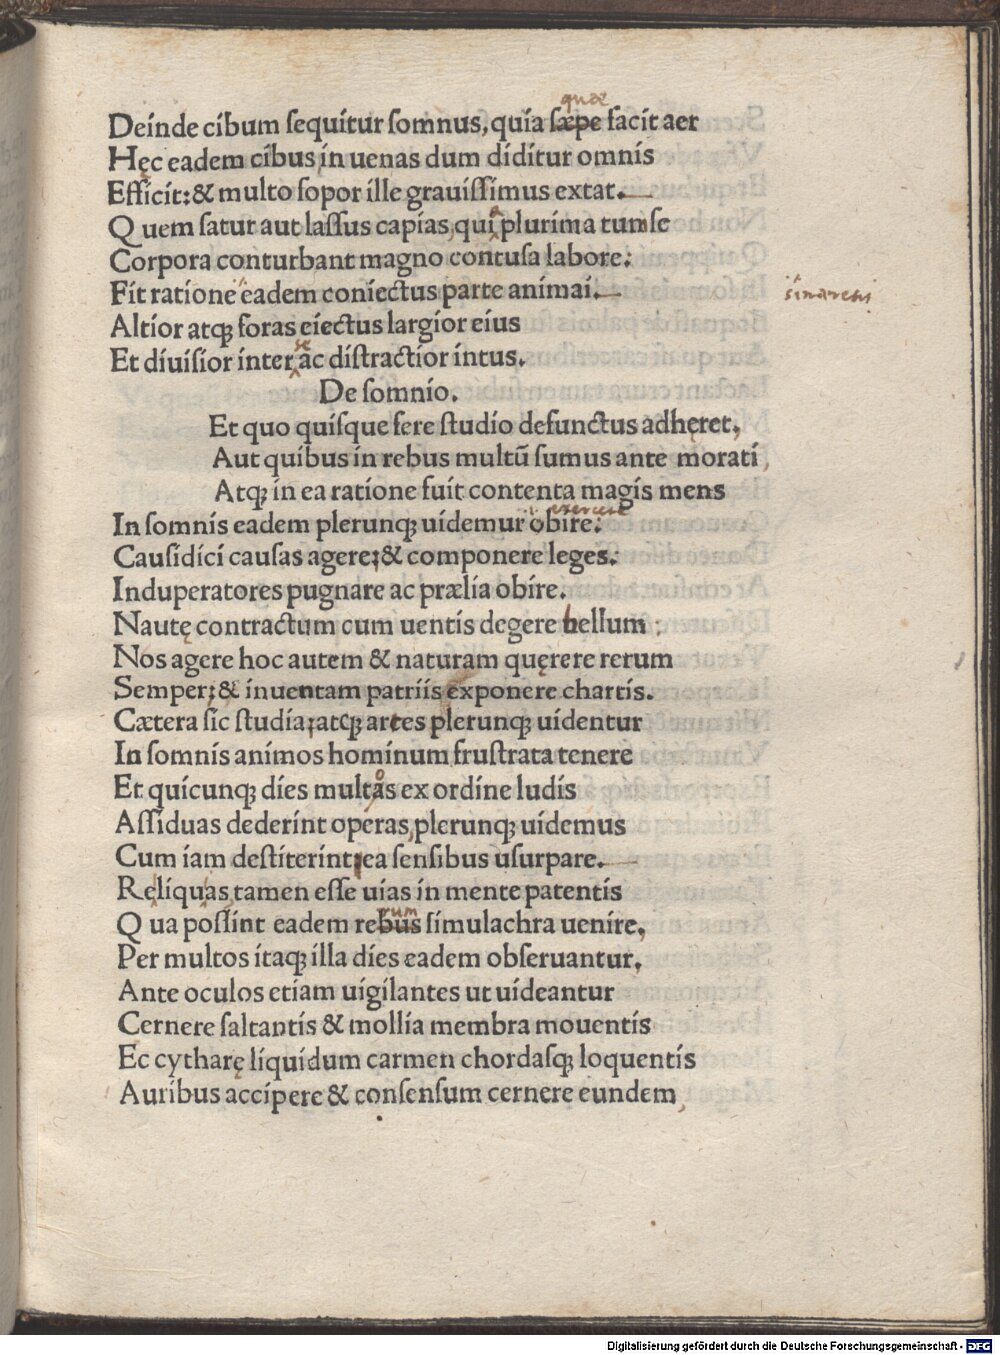 quae
Deinde cibum ſequitur ſomnus, quia ſæpe facit aer
Hęc eadem cibus, in uenas dum diditur omnis
Efficit: & multo ſopor ille grauiſſimus extat.
Q uem ſatur aut laſſus capias, qui plurima tum ſe
Corpora conturbant magno contuſa labore:
Fit ratione eadem coniectus parte animai.
Altior atq; foras eiectus largior eius
se
Et diuiſior inter ac diſtractior intus.
De ſomnio.
Et quo quiſque fere ſtudio defunctus adhęret,
Aut quibus in rebus multū ſumus ante morati,
Atq; in ea ratione fuit contenta magis mens
exercere
In ſomnis eadem plerunq; uidemur obire:
Cauſidici cauſas agere; & componere leges:
Induperatores pugnare ac prælia obire.
Nautę contractum cum uentis degere bellum:
Nos agere hoc autem & naturam quęrere rerum
Semper; & inuentam patriis exponere chartis.
Cætera ſic ſtudia; atq; artes plerunq; uidentur
In ſomnis animos hominum fruſtrata tenere
o
Et quicunq; dies multas ex ordine ludis
Aſſiduas dederint operas, plerunq; uidemus
Cum iam deſtiterint; ea ſenſibus uſurpare.
Reliquas, tamen eſſe uias in mente patentis
rum
Q ua poſſint eadem rebus ſimulachra uenire,
Per multos itaq; illa dies eadem obſeruantur,
Ante oculos etiam uigilantes ut uideantur
Cernere ſaltantis & mollia membra mouentis
Ec cytharę liquidum carmen chordaſq; loquentis
Auribus accipere & conſenſum cernere eundem,
Digitalisierung gefördert durch die Deutsche Forschungsgemeinschaft - DFG